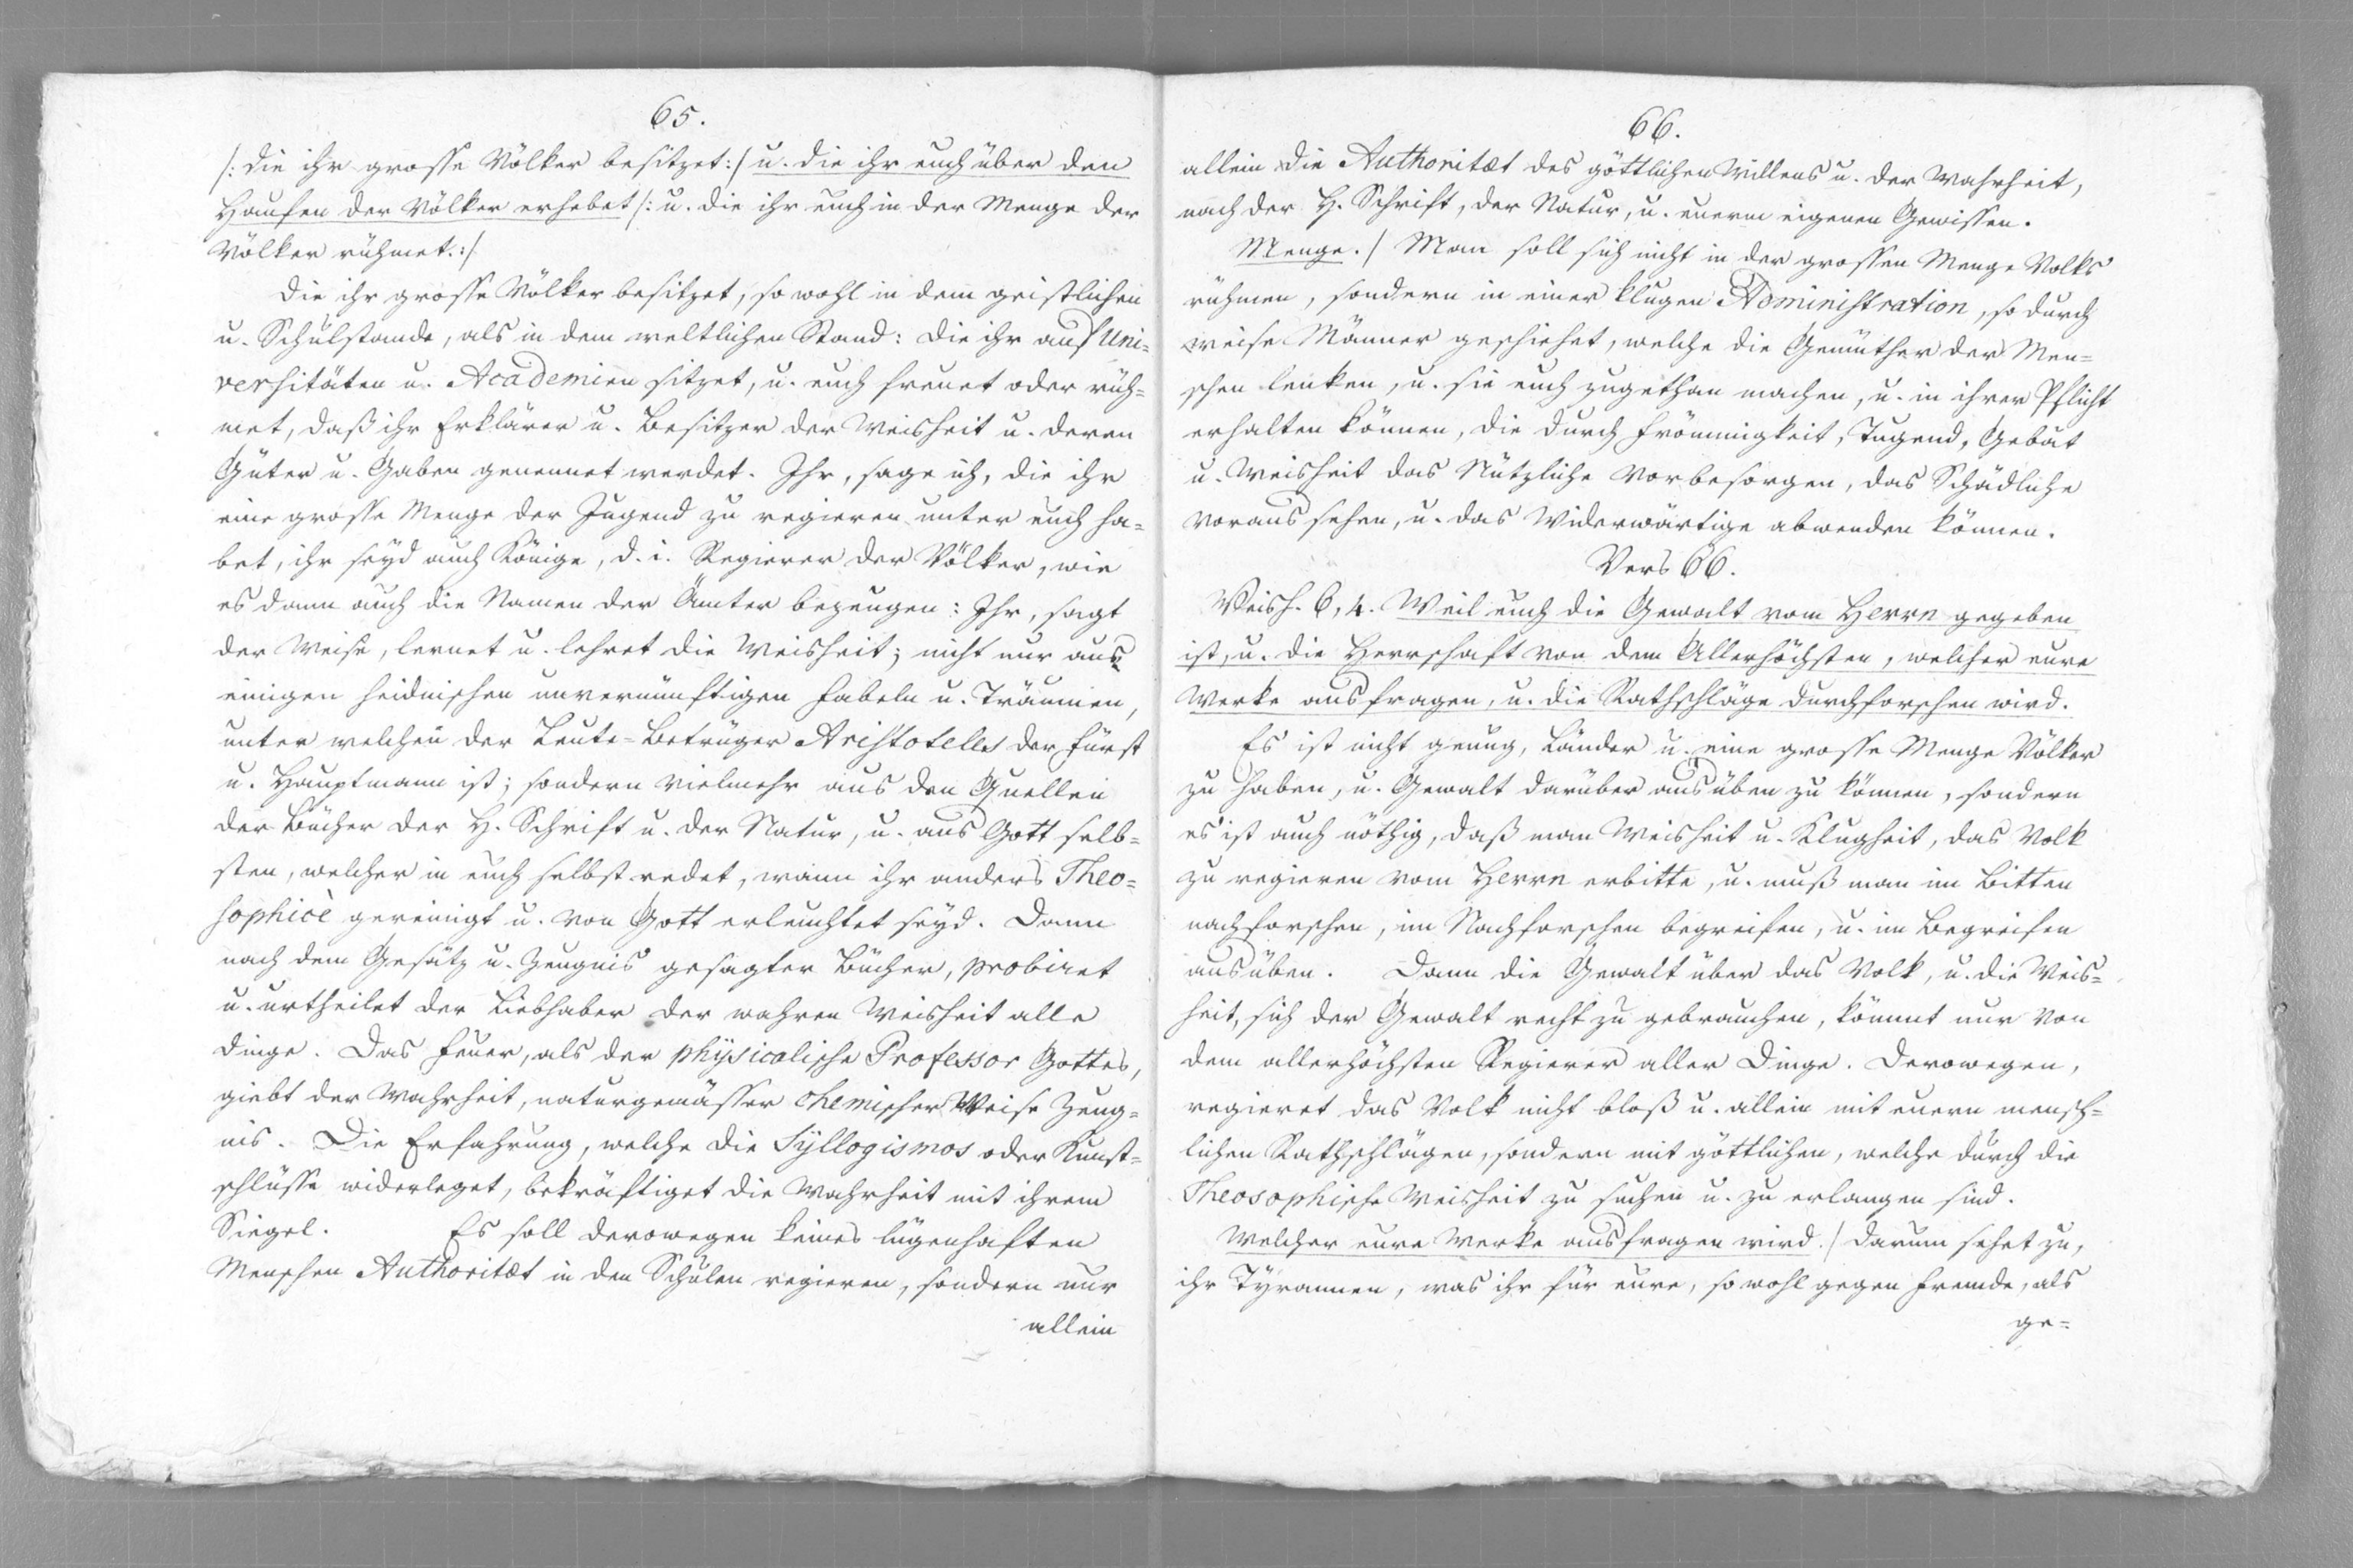 65.
/: die ihr grosse Völker besitzet :/ u. die ihr euch über den
Haufen der Völker erhebet /: u. die ihr euch in der Menge der
Völker rühmet. :/
Die ihr grosse Völker besitzet, so wohl in dem geistlichen
u. Schulstande, als in dem weltlichen Stand: Die ihr auf Uni=
versitäten u. Academien sitzet, u. euch freuet oder rüh=
met, daß ihr Erklärer u. Besitzer der Weisheit u. deren
Güter u. Gaben genennet werdet. Ihr, sage ich, die ihr
eine grosse Menge der Jugend zu regieren unter euch ha=
bet, ihr seyd auch Könige, d. i. Regierer der Völker, wie
es dann auch die Namen der Ämter bezeugen: Ihr, sagt
der Weise, lernet u. lehret die Weisheit; nicht nur aus
einigen heidnischen unvernünftigen Fabeln u. Träumen,
unter welchen der Leute=Betrüger Aristoteles der Fürst
u. Hauptmann ist; sondern vielmehr aus den Quellen
der Bücher der H. Schrift u. der Natur, u. aus Gott selb=
sten, welcher in euch selbst redet, wann ihr anders Theo=
sophicè gereinigt u. von Gott erleuchtet seyd. Dann
nach dem Gesätz u. Zeugnis gesagter Bücher, probiret
u. urtheilet der Liebhaber der wahren Weisheit alle
Dinge. Das Feuer, als der physicalische Professor Gottes,
giebt der Wahrheit, naturgemässer chemischer Weise Zeug=
nis. Die Erfahrung, welche die Syllogismos oder Kunst=
schlüsse widerleget, bekräftiget die Wahrheit mit ihrem
Siegel. Es soll derowegen keines lügenhaften
Menschen Authoritæt in den Schulen regieren, sondern nur
allein
66.
allein die Authoritæt des göttlichen Willens u. der Wahrheit,
nach der H. Schrift, der Natur, u. euerm eigenen Gewissen.
Menge. / Man soll sich nicht in der grossen Menge Volks
rühmen, sondern in einer klugen Administration, so durch
weise Männer geschiehet, welche die Gemüther der Men=
schen lenken, u. sie euch zugethan machen, u. in ihrer Pflicht
erhalten können, die durch Frömmigkeit, Tugend, Gebät
u. Weisheit das Nützliche vorbesorgen, das Schädliche
voraus sehen, u. das Widerwärtige abwenden können.
Vers 66.
Weish. 6, 4. Weil euch die Gewalt vom Herrn gegeben
ist, u. die Herrschaft von dem Allerhöchsten, welcher eure
Werke ausfragen, u. die Rathschläge durchforschen wird.
Es ist nicht genug, Länder u. eine grosse Menge Völker
zu haben, u. Gewalt darüber ausüben zu können, sondern
es ist auch nöthig, daß man Weisheit u. Klugheit, das Volk
zu regieren vom Herrn erbitte, u. muß man im Bitten
nachforschen, im Nachforschen begreifen, u. im Begreifen
ausüben. Dann die Gewalt über das Volk, u. die Weis=
heit, sich der Gewalt recht zu gebrauchen, kömmt nur von
dem allerhöchsten Regierer aller Dinge. Derowegen,
regieret das Volk nicht bloß u. allein mit euern mensch=
lichen Rathschlägen, sondern mit göttlichen, welche durch die
Theosophische Weisheit zu suchen u. zu erlangen sind.
Welcher eure Werke ausfragen wird. / Darum sehet zu,
ihr Tyrannen, was ihr für eure, so wohl gegen Fremde, als
ge=